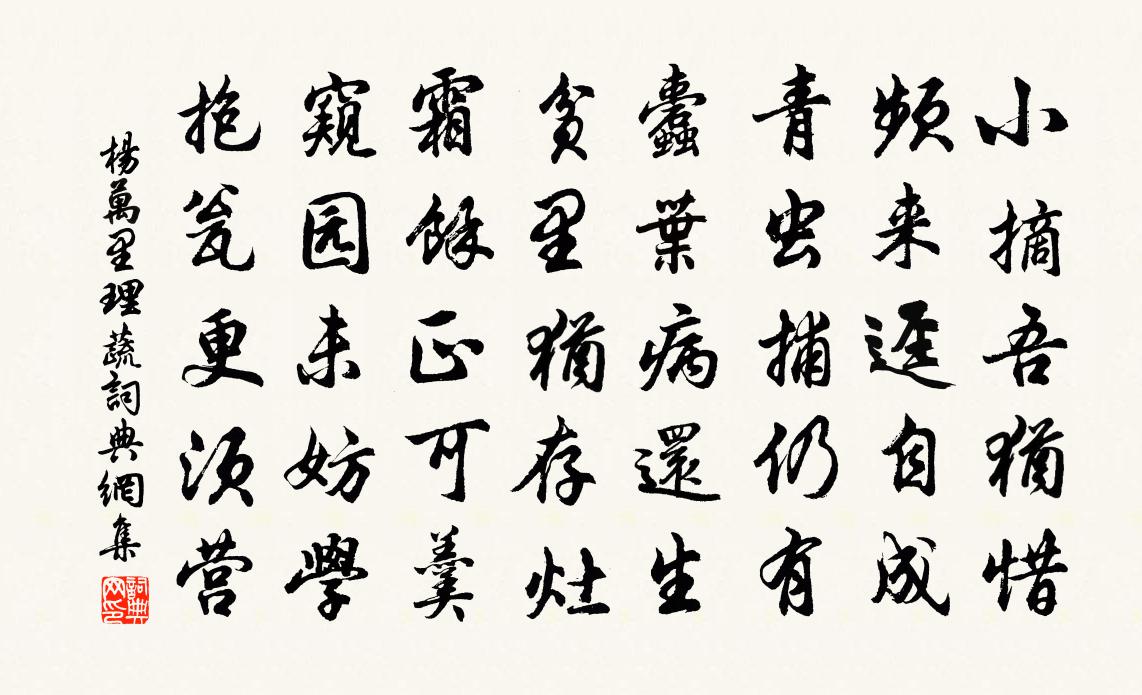 小摘吾猶惜
频来逕自成
青虫捕仍有
蠹葉病還生
贫里猶存灶
霜餘正可羹
窺园未妨學
抱瓮更须营
楊萬里理蔬詞典網集
詞典网印